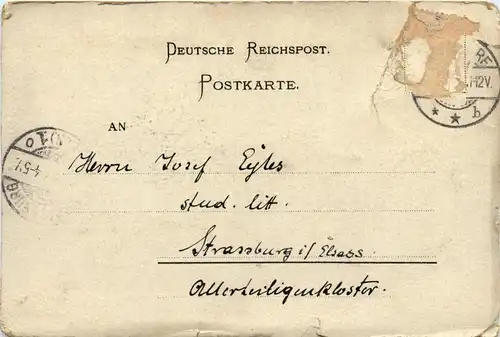 DEUTSCHE REICHSPOST.
POSTKARTE.
12V.
* * b
AN
Herrn Josef Eyles
stud. litt.
Strassburg i/Elsass.
Allerheiligenkloster.